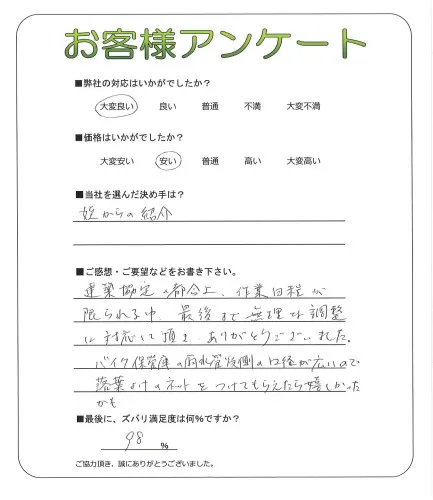 お客様アンケート
■弊社の対応はいかがでしたか?
大変良い 良い 普通 不満 大変不満
■価格はいかがでしたか?
大変安い 安い 普通 高い 大変高い
■当社を選んだ決め手は?
姪からの紹介
■ご感想・ご要望などをお書き下さい。
建築協定の都合上、作業日程が
限られる中、最後まで無理な調整
に対応して頂き ありがとうございました。
バイク保管庫の雨水管 側の口径が広いので
落葉よけのネットをつけてもらえたら嬉しかった
かも
■最後に、ズバリ満足度は何%ですか?
98 %
ご協力頂き、誠にありがとうございました。